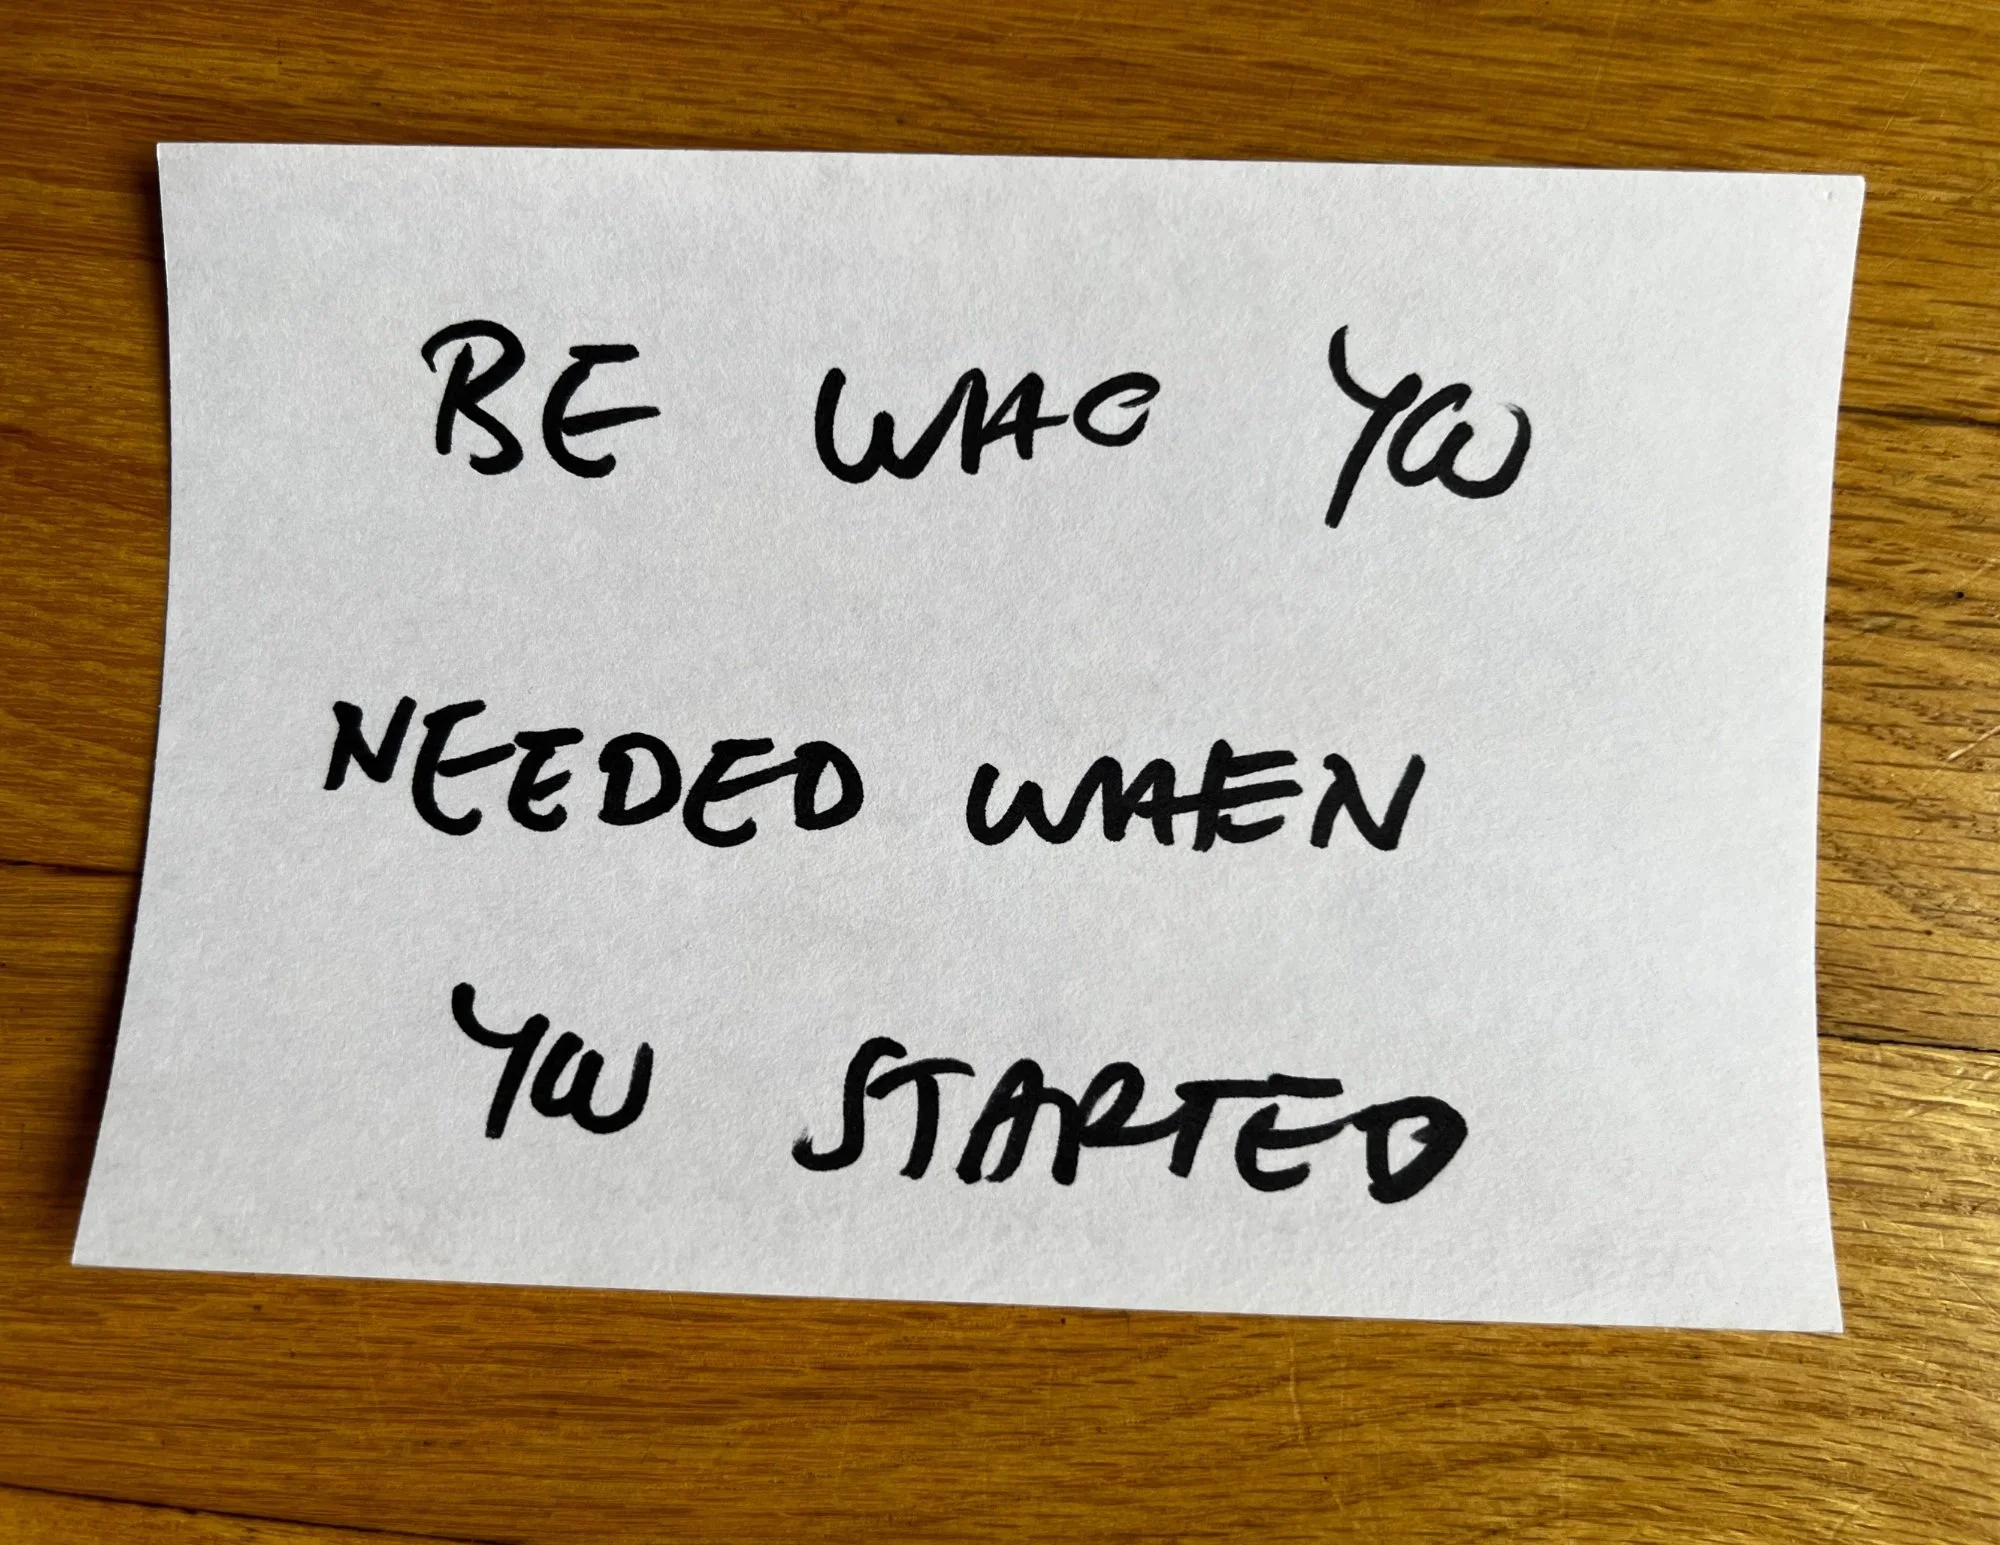 BE WHO YOU
NEEDED WHEN
YOU STARTED